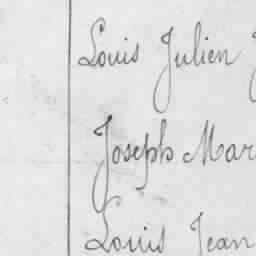 Louis Julien
Joseph Mar
Louis Jean